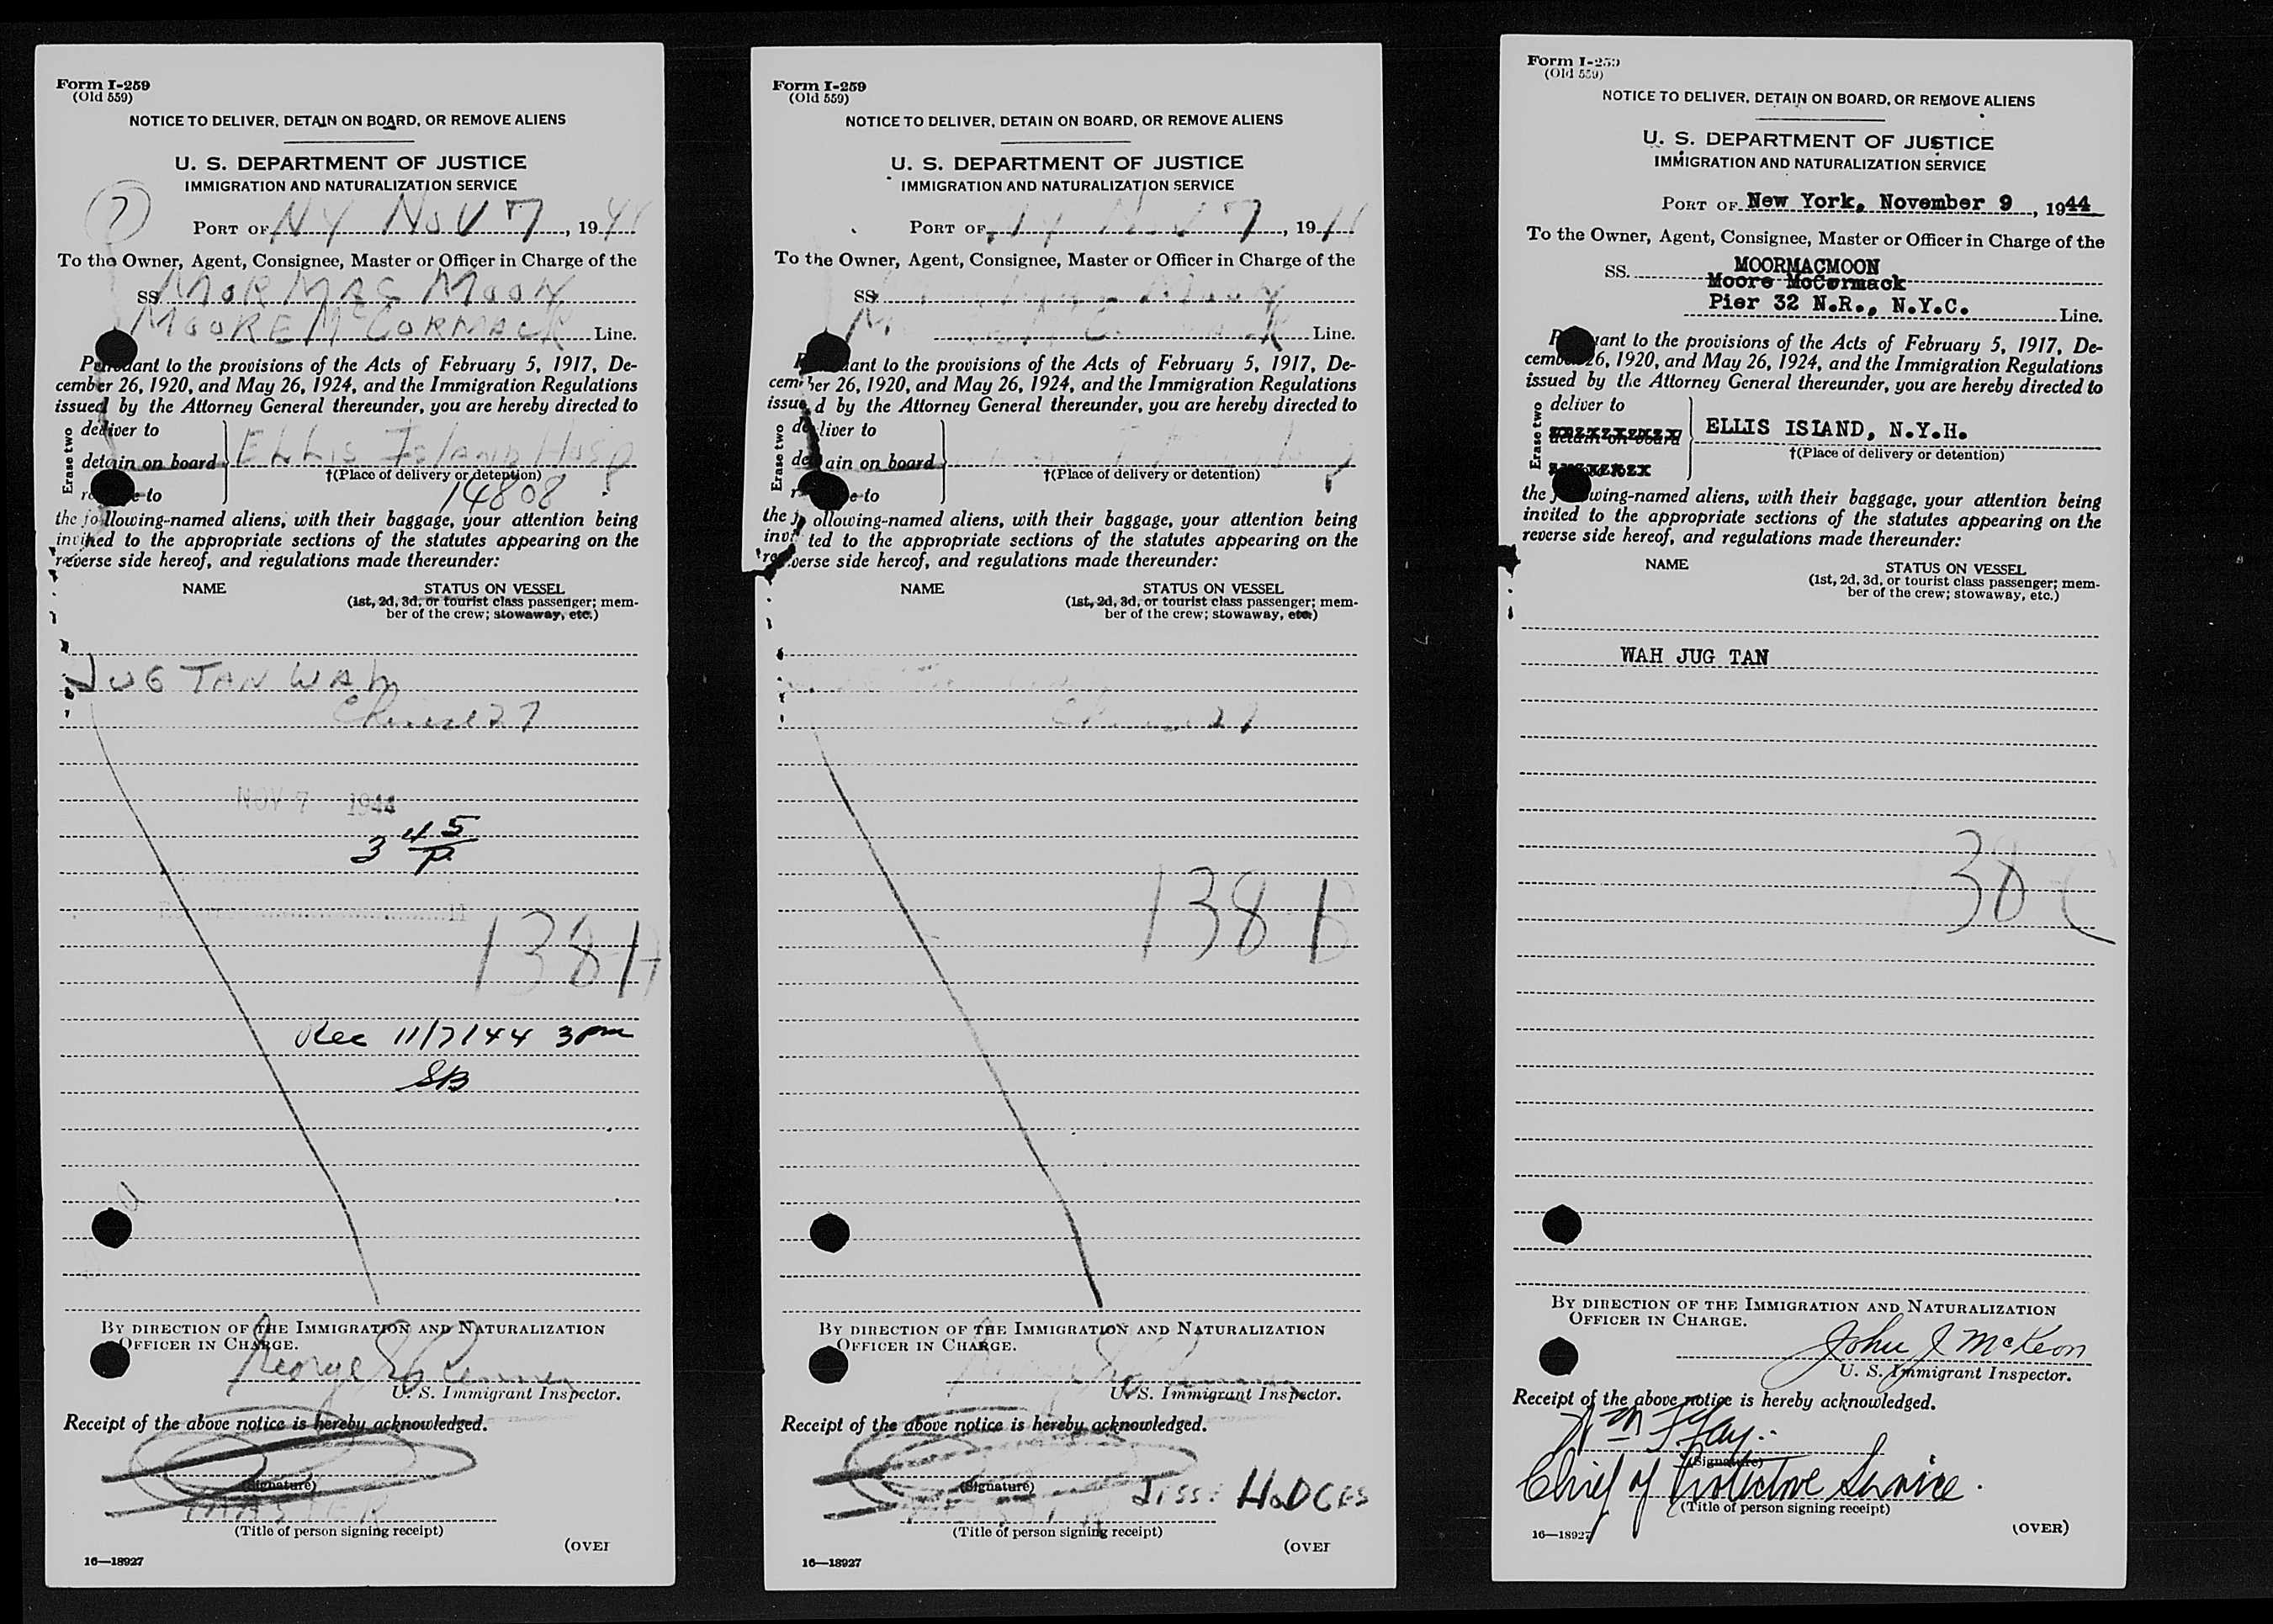 Form I-259
(Old 559)
NOTICE TO DELIVER, DETAIN ON BOARD, OR REMOVE ALIENS
U. S. DEPARTMENT OF JUSTICE
IMMIGRATION AND NATURALIZATION SERVICE
7
PORT OF NY NOV 7, 1944
To the Owner, Agent, Consignee, Master or Officer in Charge of the
SS MORMAC MOON
MOORE McCORMACK Line.
Pursuant to the provisions of the Acts of February 5, 1917, De-
cember 26, 1920, and May 26, 1924, and the Immigration Regulations
issued by the Attorney General thereunder, you are hereby directed to
Erase two
deliver to
detain on board
ELLIS ISLAND HOSP
†(Place of delivery or detention)
remove to
14808
the following-named aliens, with their baggage, your attention being
invited to the appropriate sections of the statutes appearing on the
reverse side hereof, and regulations made thereunder:
NAME STATUS ON VESSEL
(1st, 2d, 3d, or tourist class passenger; mem-
ber of the crew; stowaway, etc.)
JUG TAN WAH
Chinese 27
NOV 7 1944
3 45/P.
138 A
Rec 11/7/44 3 pm
SB
BY DIRECTION OF THE IMMIGRATION AND NATURALIZATION
OFFICER IN CHARGE.
George
U. S. Immigrant Inspector.
Receipt of the above notice is hereby acknowledged.
(Signature)
MASTER
(Title of person signing receipt)
(OVER
16—18927
Form I-259
(Old 559)
NOTICE TO DELIVER, DETAIN ON BOARD, OR REMOVE ALIENS
U. S. DEPARTMENT OF JUSTICE
IMMIGRATION AND NATURALIZATION SERVICE
PORT OF NY 7, 19
To the Owner, Agent, Consignee, Master or Officer in Charge of the
SS Moon
Line.
Pursuant to the provisions of the Acts of February 5, 1917, De-
cember 26, 1920, and May 26, 1924, and the Immigration Regulations
issued by the Attorney General thereunder, you are hereby directed to
Erase two
deliver to
detain on board
†(Place of delivery or detention)
remove to
the following-named aliens, with their baggage, your attention being
invited to the appropriate sections of the statutes appearing on the
reverse side hereof, and regulations made thereunder:
NAME STATUS ON VESSEL
(1st, 2d, 3d, or tourist class passenger; mem-
ber of the crew; stowaway, etc.)
27
138 B
BY DIRECTION OF THE IMMIGRATION AND NATURALIZATION
OFFICER IN CHARGE.
U. S. Immigrant Inspector.
Receipt of the above notice is hereby acknowledged.
(Signature)
Jesse HODGES
(Title of person signing receipt)
(OVER
16—18927
Form I-259
(Old 559)
NOTICE TO DELIVER, DETAIN ON BOARD, OR REMOVE ALIENS
U. S. DEPARTMENT OF JUSTICE
IMMIGRATION AND NATURALIZATION SERVICE
PORT OF New York, November 9, 1944
To the Owner, Agent, Consignee, Master or Officer in Charge of the
SS. MOORMACMOON
Moore McCormack
Pier 32 N.R., N.Y.C. Line.
Pursuant to the provisions of the Acts of February 5, 1917, De-
cember 26, 1920, and May 26, 1924, and the Immigration Regulations
issued by the Attorney General thereunder, you are hereby directed to
Erase two
deliver to
detain on board
ELLIS ISLAND, N.Y.H.
†(Place of delivery or detention)
the following-named aliens, with their baggage, your attention being
invited to the appropriate sections of the statutes appearing on the
reverse side hereof, and regulations made thereunder:
NAME STATUS ON VESSEL
(1st, 2d, 3d, or tourist class passenger; mem-
ber of the crew; stowaway, etc.)
WAH JUG TAN
138 C
BY DIRECTION OF THE IMMIGRATION AND NATURALIZATION
OFFICER IN CHARGE.
John J McKeon
U. S. Immigrant Inspector.
Receipt of the above notice is hereby acknowledged.
Wm F Fay
(Signature)
Chief of Protective Service.
(Title of person signing receipt)
16—18927
(OVER)